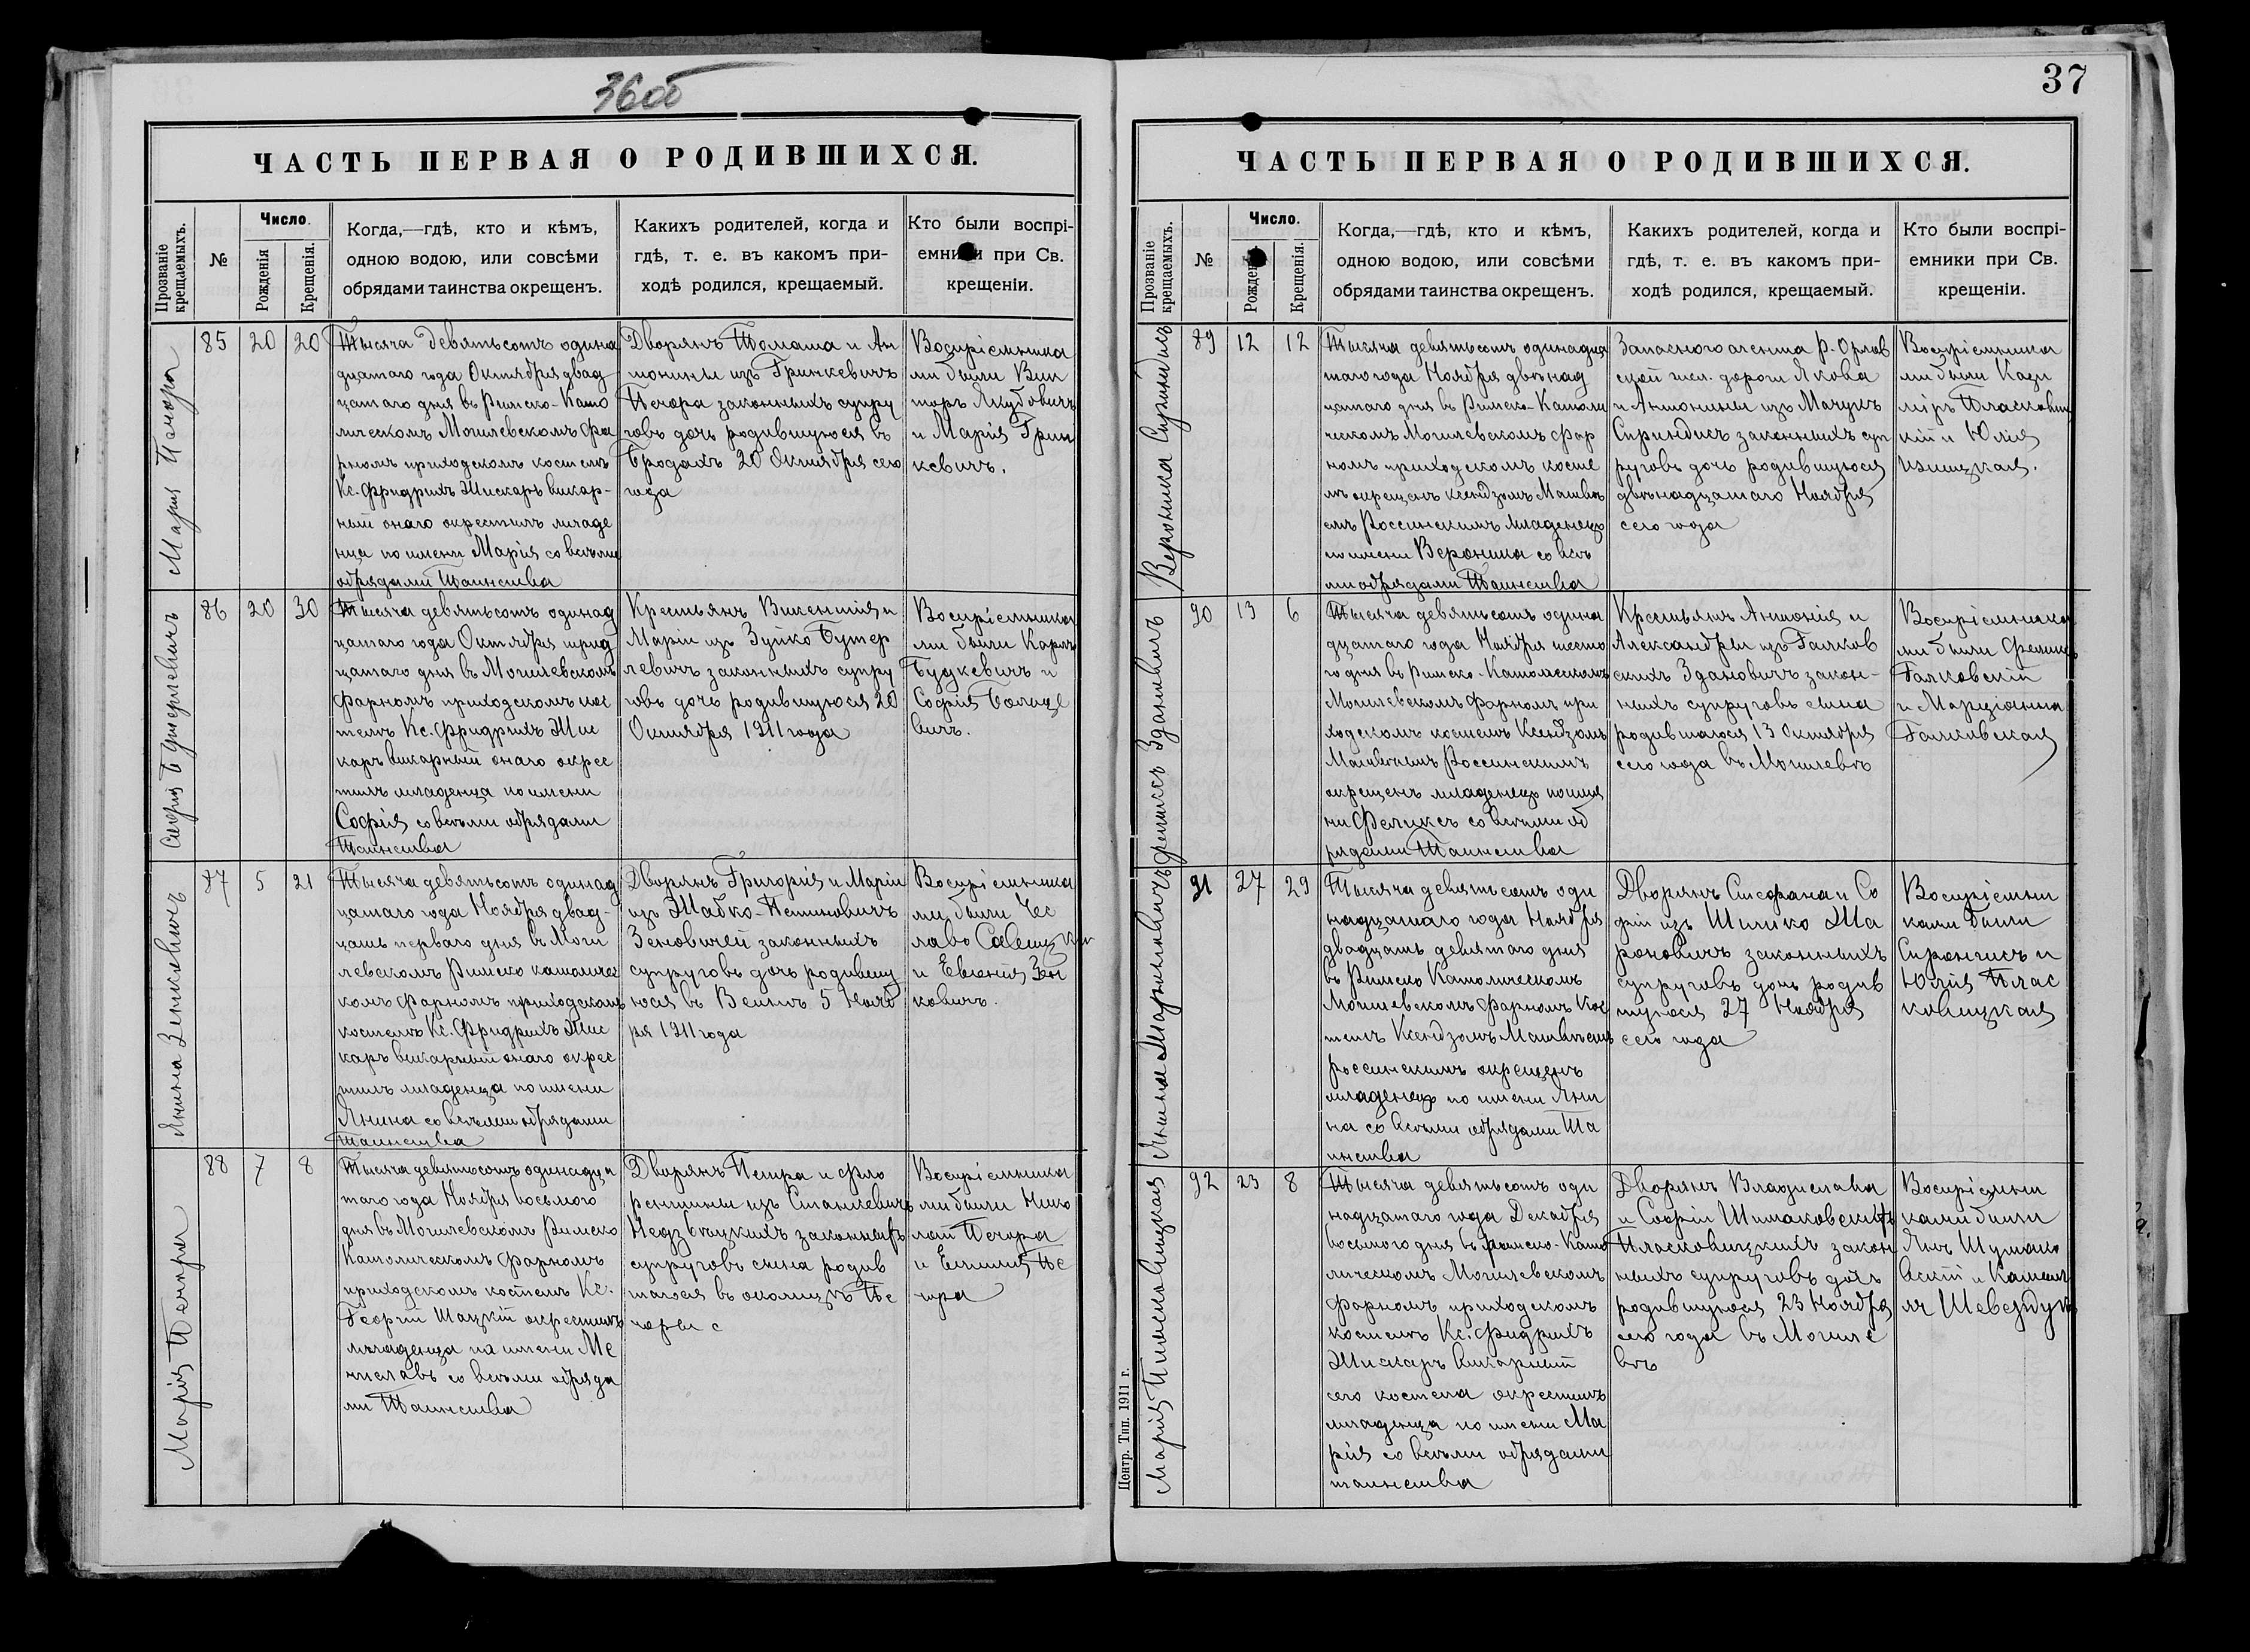 36об
ЧАСТЬ ПЕРВАЯ О РОДИВШИХСЯ.
Прозваніе крещаемыхъ.
№
Число.
Рожденія
Крещенія.
Когда,—гдѣ, кто и кѣмъ,
одною водою, или совсѣми
обрядами таинства окрещенъ.
Какихъ родителей, когда и
гдѣ, т. е. въ какомъ при-
ходѣ родился, крещаемый.
Кто были воспрі-
емники при Св.
крещеніи.
Мария
85
20
20
Тысяча девятьсотъ одина
дцатаго года Октября двад
цатаго дня въ Римско-Като
лическомъ Могилевскомъ фа
рномъ приходскомъ костелѣ
Кс. Фридрихъ Жискаръ викар-
ный онаго окрестилъ младе
нца по имени Марія со всѣми
обрядами Таинства
Дворянъ Томаша и Ан
тонины изъ Гринкевичъ
Печора законныхъ супру
говъ дочь родившуюся въ
Бродахъ 20 Октября сего
года
Воспріемника
ми были Вик
торъ Якубовичъ
и Марія Грин
кевичъ.
Софія
86
20
30
Тысяча девятьсотъ одинад
цатаго года Октября трид
цатаго дня въ Могилевскомъ
Фарномъ приходскомъ кос
телѣ Кс. Фридрихъ Жис
каръ викарный онаго окрес
тилъ младенца по имени
Софія со всѣми обрядами
Таинства
Крестьянъ Викентія и
Маріи изъ Зуйко
законныхъ супру
говъ дочь родившуюся 20
Октября 1911 года
Воспріемника
ми были Карлъ
Будкевичъ и
Софія
Янина Зенкевичъ
87
5
21
Тысяча девятьсотъ одинад
цатаго года Ноября двад-
цать перваго дня въ Моги
левскомъ Римско католичес
комъ Фарномъ приходскомъ
костелѣ Кс. Фридрихъ Жис
каръ викарный онаго окрес
тилъ младенца по имени
Янина со всѣми обрядами
Таинства
Дворянъ Григорія и Маріи
изъ
законныхъ
супруговъ дочь родившу
юся въ 5 Нояб
ря 1911 года
Воспріемника
ми были Чес
лавъ
и Евгенія Зен
ковичъ.
Марія Печора
88
7
8
Тысяча девятьсотъ одинадца
таго года Ноября восьмого
дня въ Могилевскомъ Римско
Католическомъ Фарномъ
приходскомъ костелѣ Кс.
Георгій Шацкій окрестилъ
младенца по имени Ме
числавъ со всѣми обряда
ми Таинства
Дворянъ Петра и Фло
рентины изъ Станкевичъ
законныхъ
супруговъ сына родив
шагося въ околицѣ Пе
чоры с
Воспріемника
ми были Нико
лай Печора
и Емилія Пе
чора
37
ЧАСТЬ ПЕРВАЯ О РОДИВШИХСЯ.
Прозваніе крещаемыхъ.
№
Число.
Рожденія
Крещенія.
Когда,—гдѣ, кто и кѣмъ,
одною водою, или совсѣми
обрядами таинства окрещенъ.
Какихъ родителей, когда и
гдѣ, т. е. въ какомъ при-
ходѣ родился, крещаемый.
Кто были воспрі-
емники при Св.
крещеніи.
Вероника
89
12
12
Тысяча девятьсотъ одинадца
таго года Ноября двѣнад
цатаго дня въ Римско-Католи
ческомъ Могилевскомъ Фар
номъ приходскомъ косте
лѣ окрещенъ ксендзомъ Матвѣ
емъ Россинскимъ младенецъ
по имени Вероника со всѣ
ми обрядами Таинства
Запаснаго агента Р. Орлов
ской жел. дороги Якова
и Антонины изъ Мачукъ
законныхъ суп
руговъ дочь родившуюся
двѣнадцатаго Ноября
сего года
Воспріемника
ми были Кази
міръ
и Юлія
Феликсъ Здановичъ
90
13
6
Тысяча девятьсотъ одина
дцатаго года Ноября шесто
го дня въ Римско-Католическомъ
Могилевскомъ Фарномъ при
ходскомъ костелѣ Ксендзомъ
Матвѣемъ Россинскимъ
окрещенъ младенецъ по име
ни Феликсъ со всѣми об
рядами Таинства
Крестьянъ Антонія и
Александры изъ Галков
скихъ Здановичъ закон-
ныхъ супруговъ сына
родившагося 13 Октября
сего года въ Могилевѣ
Воспріемника
ми были Феликсъ
Галковскій
и Марціанна
Галковская
Янина
91
27
29
Тысяча девятьсотъ оди
надцатаго года Ноября
двадцать девятаго дня
въ Римско Католическомъ
Могилевскомъ Фарномъ Кос
телѣ Ксендзомъ Матвѣемъ
Россинскимъ окрещенъ
младенецъ по имени Яни
на со всѣми обрядами Та
инства
Дворянъ Стефана и Со
фіи изъ
законныхъ
супруговъ дочь родив
шуюся 27 Ноября
сего года
Воспріемни
ками были
и
Юлія Плас
ковицкая
Марія
92
23
8
Тысяча девятьсотъ оди
надцатаго года Декабря
восьмого дня въ Римско-Като
лическомъ Могилевскомъ
Фарномъ приходскомъ
костелѣ Кс. Фридрихъ
Жискаръ викарный
сего костела окрестилъ
младенца по имени Ма
рія со всѣми обрядами
таинства
Дворянъ Владислава
и Софіи
Пласковицкихъ закон
ныхъ супруговъ дочь
родившуюся 23 Ноября
сего года въ Могиле
вѣ
Воспріемни
ками были
Янъ
и
Центр. Тип. 1911 г.